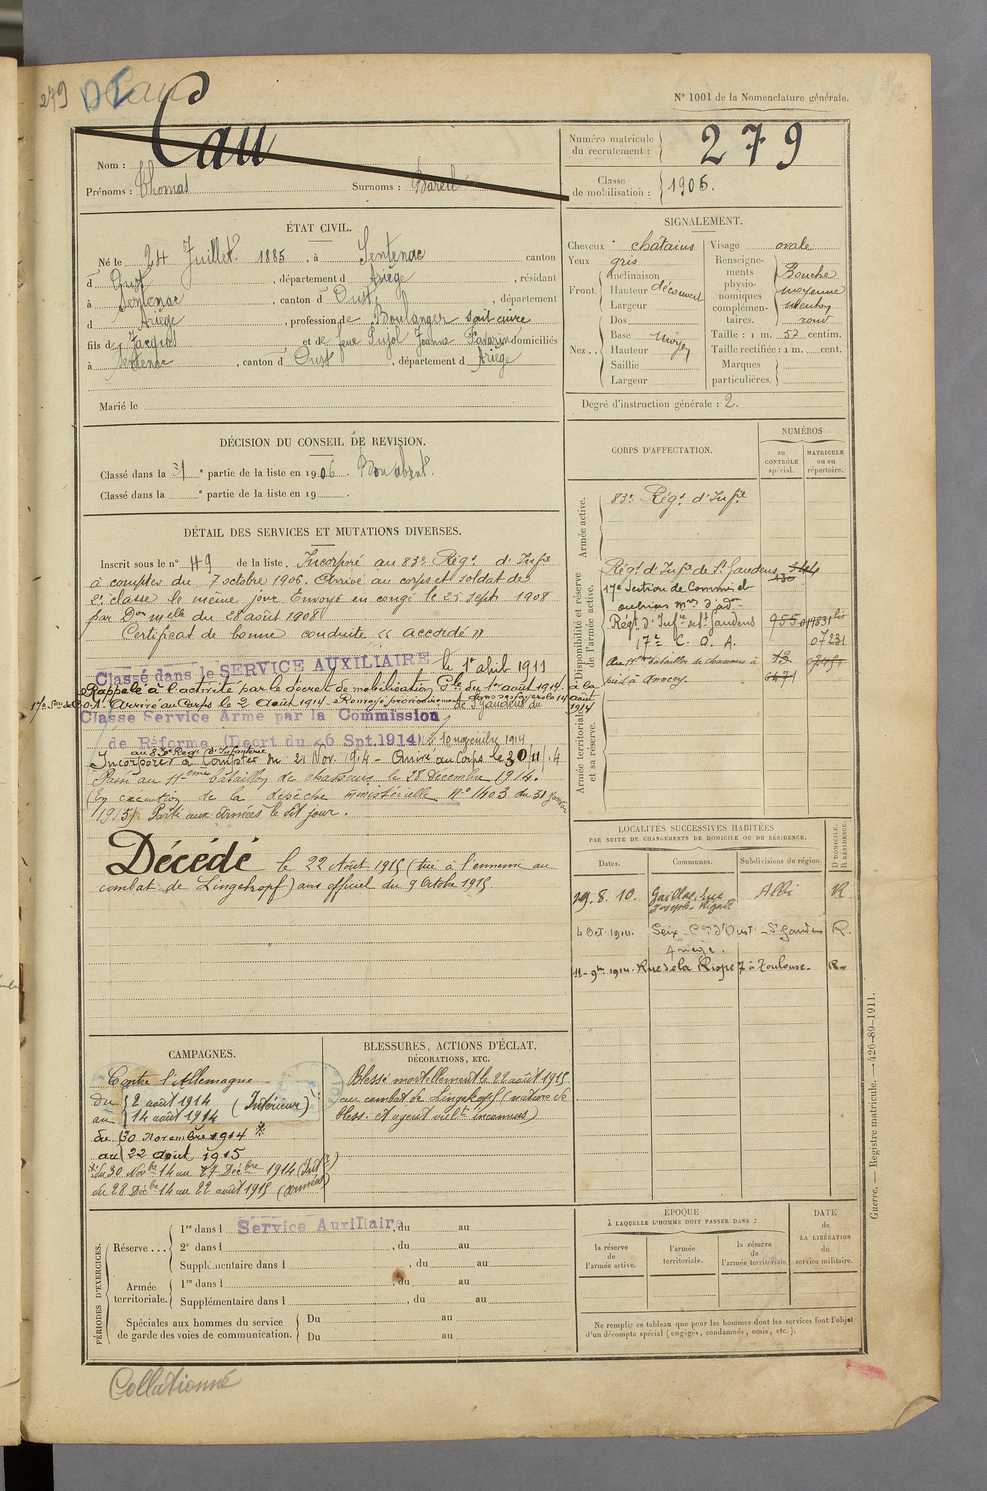 279
N° 1001 de la Nomenclature générale.
Nom : Cau
Prénoms : Thomas Surnoms : Bareil
Numéro matricule du recrutement : 279
Classe de mobilisation : 1905.
ÉTAT CIVIL.
Né le 24 Juillet 1885, à Sentenac canton
d Oust, département d Ariège, résidant
à Sentenac, canton d Oust, département
d Ariège, profession de Boulanger sait cuire
fils de Jacques et de feue Pujol Jeanne domiciliés
à Sentenac, canton d Oust, département d Ariège
Marié le
SIGNALEMENT.
Cheveux châtains
Yeux gris
Front. Inclinaison
Hauteur découvert
Largeur
Nez.. Dos
Base moyen
Hauteur
Saillie
Largeur
Visage ovale
Renseignements physionomiques complémentaires. Bouche moyenne menton rond
Taille : 1 m. 57 centim.
Taille rectifiée : 1 m. cent.
Marques particulières.
Degré d'instruction générale : 2.
DÉCISION DU CONSEIL DE REVISION.
Classé dans la 31 e partie de la liste en 1906. Bon absent.
Classé dans la e partie de la liste en 19 .
DÉTAIL DES SERVICES ET MUTATIONS DIVERSES.
Inscrit sous le n° 49 de la liste. Incorporé au 83e Régt d'Infie
à compter du 7 octobre 1906. Arrivé au corps et soldat de
2e classe le même jour. Envoyé en congé le 25 sept 1908
par Don mlle du 28 août 1908
Certificat de bonne conduite « accordé »
Classé dans le SERVICE AUXILIAIRE le 1er abril 1911
Rappelé à l'activité par le décret de mobilisation Gle du 1er août 1914. à la
17e Son de C.O.A. Arrivé au Corps le 2 Août 1914. Renvoyé provisoirement dans ses foyers le 14 août 1914
Classé Service Armé par la Commission de St Gaudens du
de Réforme (Decrt du 26 Spt.1914) 10 novembre 1914
au 83e Regt d'Infanterie
Incorporé à Compter du 21 Nov. 1914 - Arrivé au Corps le 30/11/14
Passé au 11eme bataillon de chasseurs le 28 Décembre 1914.
(En exécution de la dépêche ministérielle N° 1403 du 31 Janvier
1915) Parti aux armées le dit jour.
Décédé le 22 Août 1915 (tué à l'ennemi au
combat de Lingekopf) avis officiel du 9 Octobre 1915
CORPS D'AFFECTATION.
NUMÉROS
au CONTRÔLE spécial.
MATRICULE ou au répertoire.
Armée active.
83e Régt d'Infie
Disponibilité et réserve de l'armée active.
Régt d'Infie de St Gaudens
17e Section de Commis et
ouvriers mres d'adon
Régt d'Infie de St Gaudens
17e C. O. A. 07231
Au 11e bataillon de chasseurs à
pied à Annecy.
Armée territoriale et sa réserve.
LOCALITÉS SUCCESSIVES HABITÉES
PAR SUITE DE CHANGEMENTS DE DOMICILE OU DE RÉSIDENCE.
Dates. Communes. Subdivisions de région. D DOMICILE. R RÉSIDENCE.
29.8.10. Gaillac, rue Joseph Rigal Albi R
4 Oct 1911. Seix Cton d'Oust Ariège. St Gaudens R.
11-9bre 1914. Rue de la Rispe 7 à Toulouse. R
CAMPAGNES.
Contre l'Allemagne
du 2 août 1914
au 14 août 1914 (Intérieur)
du 30 Novembre 1914
au 22 août 1915
du 30 Novbre 14 au 27 Décbre 1914 (Intr)
du 28 Décbre 14 au 22 août 1915 (armées)
BLESSURES, ACTIONS D'ÉCLAT,
DÉCORATIONS, ETC.
Blessé mortellement le 22 août 1915
au combat de Lingekopf (nature de
bless. et agent vulnt inconnus)
PÉRIODES D'EXERCICES.
Réserve... 1re dans l Service Auxiliaire, du au
2e dans l , du au
Supplémentaire dans l , du au
Armée territoriale. 1re dans l , du au
Supplémentaire dans l , du au
Spéciales aux hommes du service de garde des voies de communication. Du au
Du au
ÉPOQUE
À LAQUELLE L'HOMME DOIT PASSER DANS :
la réserve de l'armée active.
l'armée territoriale.
la réserve de l'armée territoriale.
DATE de LA LIBÉRATION du service militaire.
Ne remplir ce tableau que pour les hommes dont les services font l'objet
d'un décompte spécial (engagés, condamnés, omis, etc.).
Guerre. — Registre matricule. — 426-89-1911.
Collationné